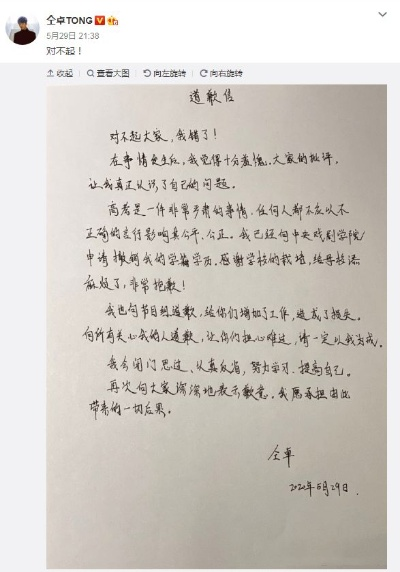 仝卓TONG
5月29日 21:38
对不起！
收起 查看大图 向左旋转 向右旋转
道歉信
对不起大家，我错了！
在事情发生后，我觉得十分羞愧。大家的批评，
让我真正认识了自己的问题。
高考是一件非常严肃的事情，任何人都不应以不
正确的言行影响其公平、公正。我已经向中央戏剧学院
申请撤销我的学籍学历。感谢学校的栽培，给母校添
麻烦了，非常抱歉！
我也向节目组道歉，给你们增加了工作，造成了损失。
向所有关心我的人道歉，让你们担心难过，请一定以我为戒。
我会闭门思过、认真反省，努力学习、提高自己。
再次向大家深深地表示歉意，我愿承担由此
带来的一切后果。
仝卓
2020年5月29日